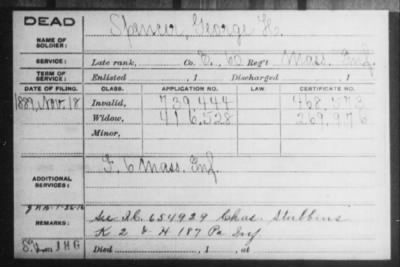 DEAD
NAME OF SOLDIER: Spencer, George H.
SERVICE: Late rank, Co. E, 62 Reg't Mass. Inf.
TERM OF SERVICE: Enlisted , 1 Discharged , 1
DATE OF FILING. CLASS. APPLICATION NO. CERTIFICATE NO.
1889, Nov. 18 Invalid, 739,444 468,573
Widow, 416,528 269,976
Minor,
ADDITIONAL SERVICES: F. 6 Mass. Inf.
REMARKS: See I.C. 654929 Chas. Stubbins
K 2 & H 187 Pa Inf
Died , 1 , at